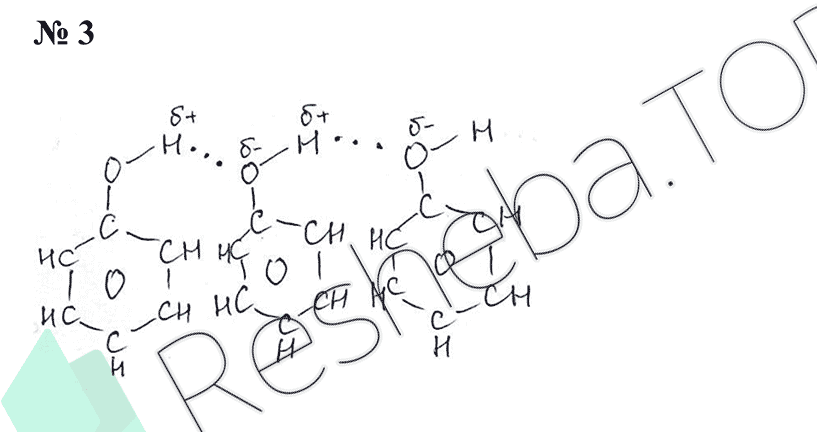 № 3
δ+ δ+ δ-
H... δ- H... H
O O O
C C C
HC CH HC CH HC CH
O O O
HC CH HC CH HC CH
C C C
H H H
Resheba.TOP